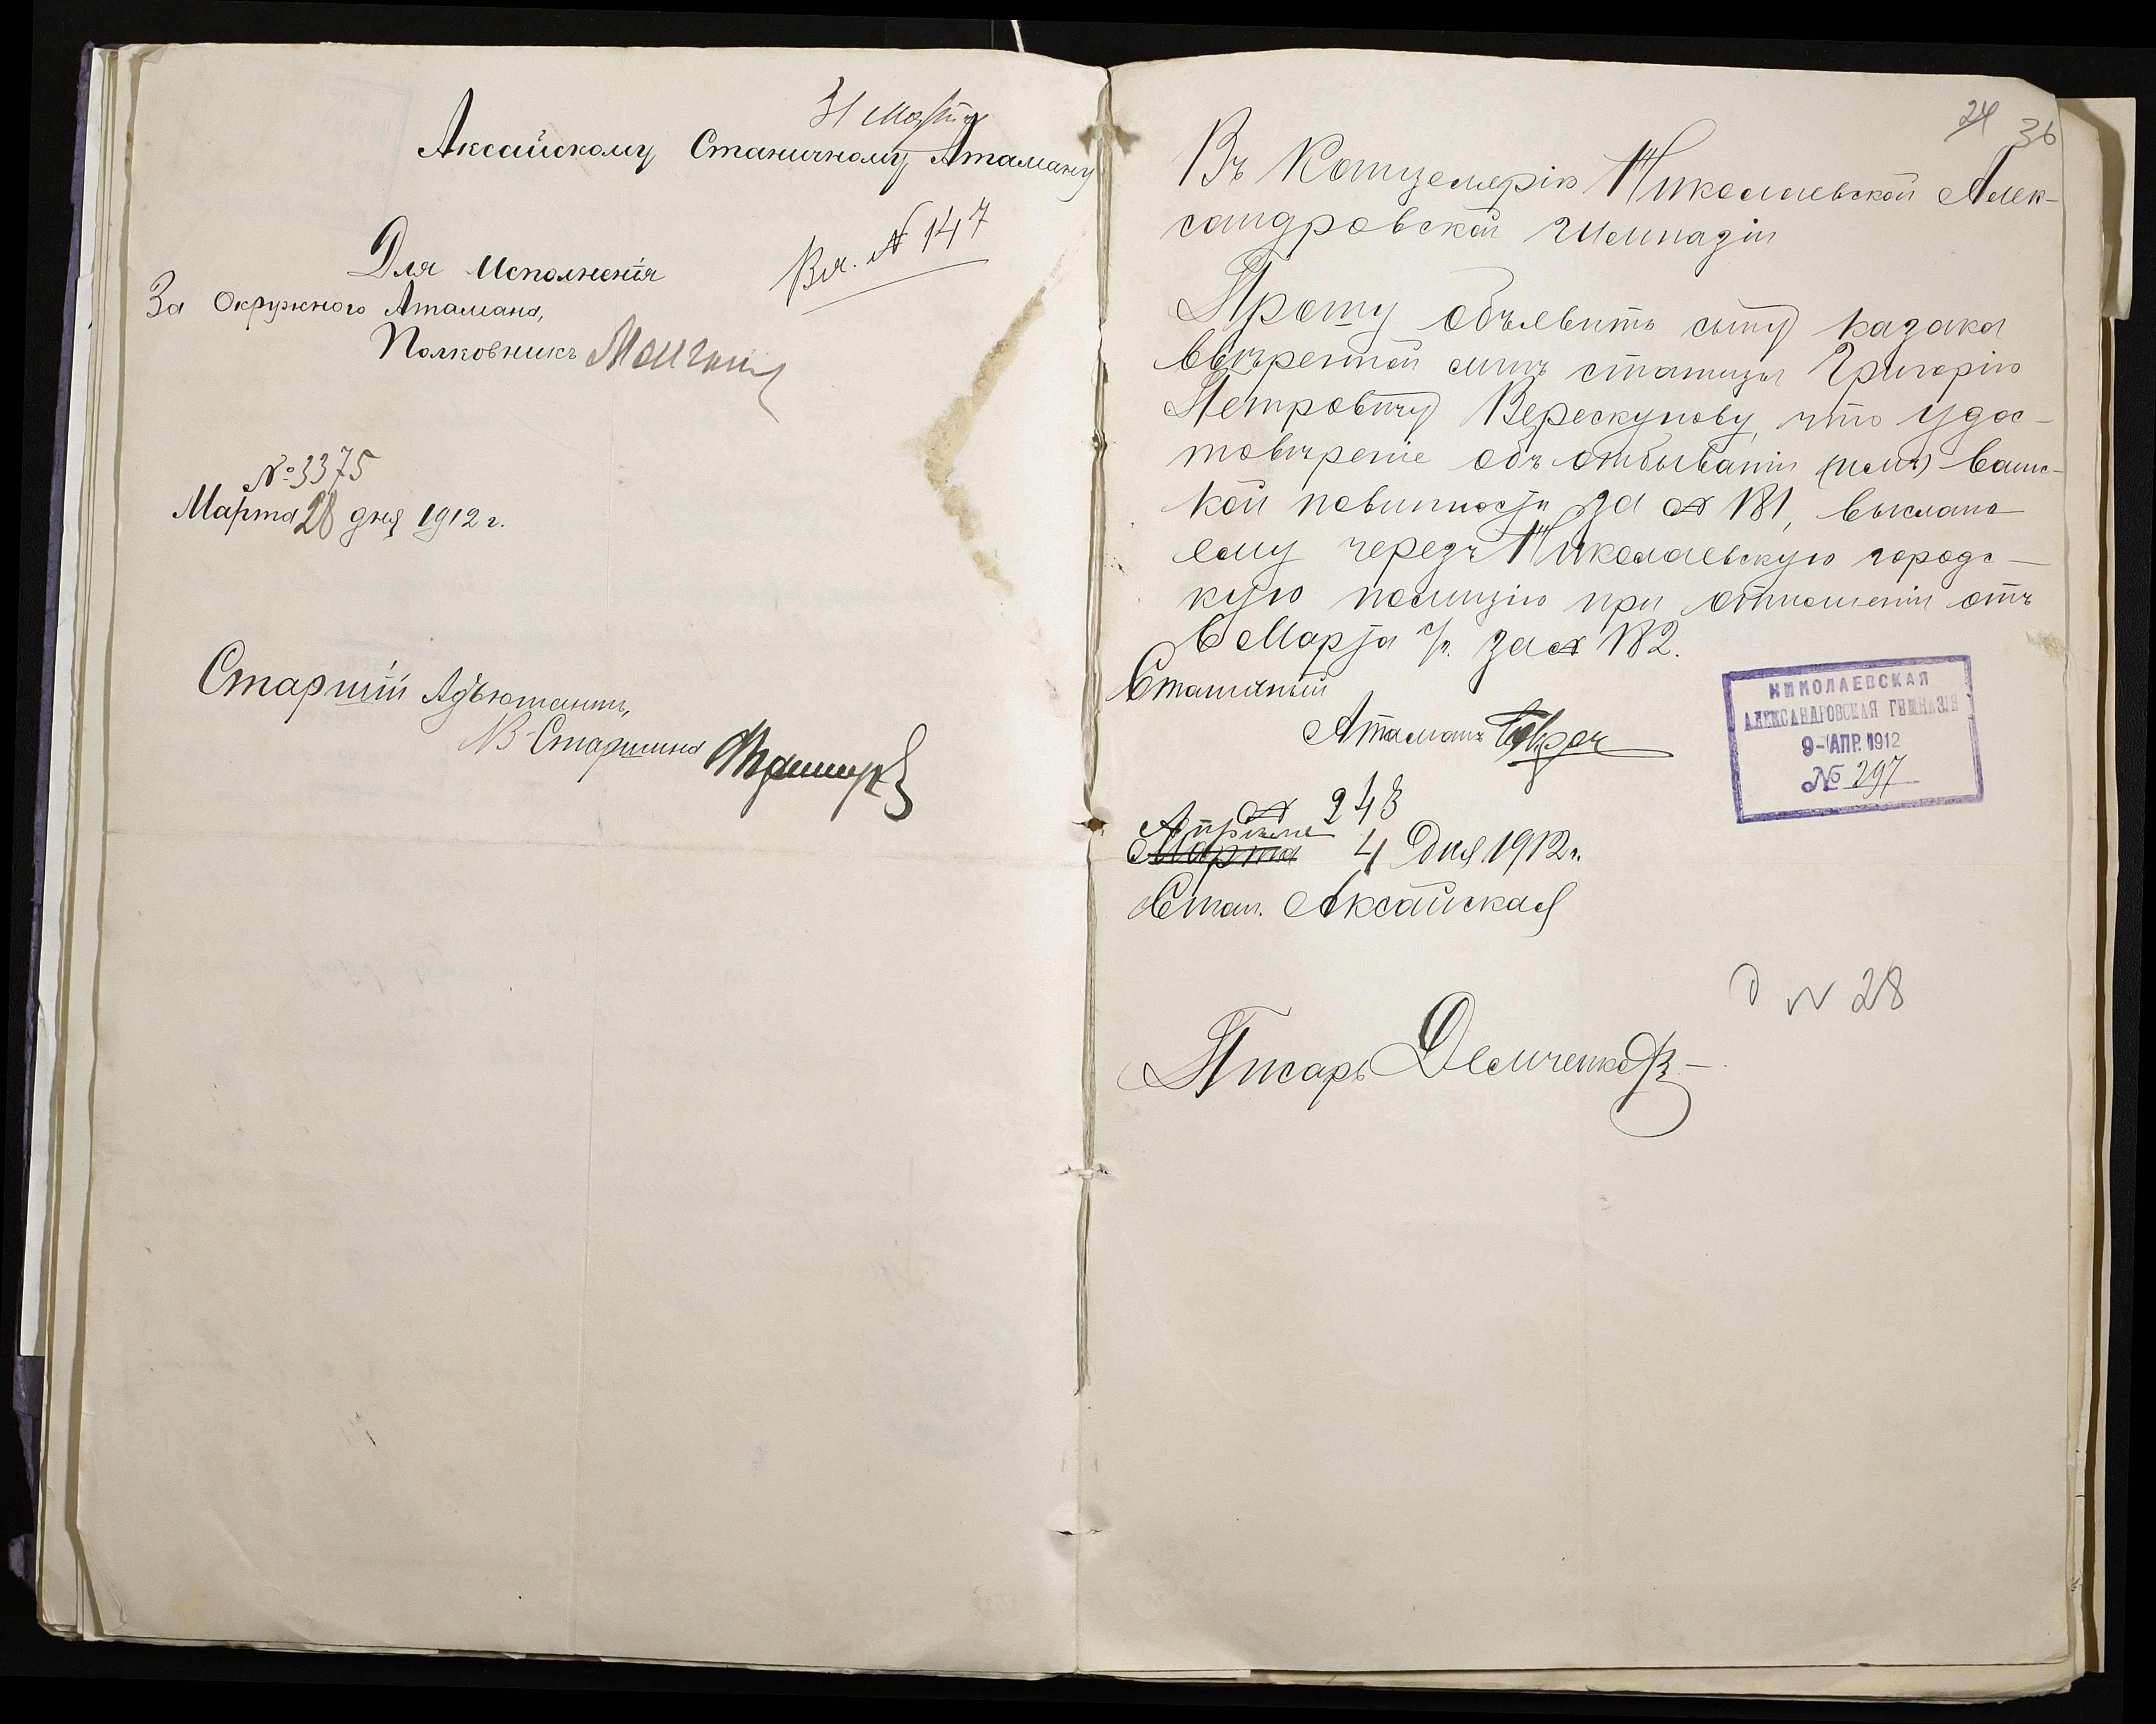 31 Марта
Аксайскому Станичному Атаману
Вх. № 147
Для Исполненія
За Окружного Атамана,
Полковникъ
№ 3375
Марта 28 дня 1912 г.
Старшій Адъютантъ,
В-Старшина
24 36
Въ Канцелярію Николаевской Алек-
сандровской Гимназіи
Прошу объявить сыну казака
ввѣренной мнѣ станицы Григорію
Петровичу Верескунову, что удос-
товѣреніе объ отбываніи имъ воинс-
кой повинности за № 181, выслано
ему черезъ Николаевскую городс-
кую полицію при отношеніи отъ
6 Марта с/г. за № 182.
Станичный
Атаманъ
НИКОЛАЕВСКАЯ
АЛЕКСАНДРОВСКАЯ ГИМНАЗІЯ
9-АПР. 1912
№ 297
№ 248
Апрѣля
Марта 4 дня 1912 г.
Стан. Аксайская
д № 28
Писарь Демченко